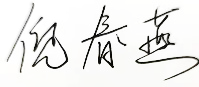 倪春燕